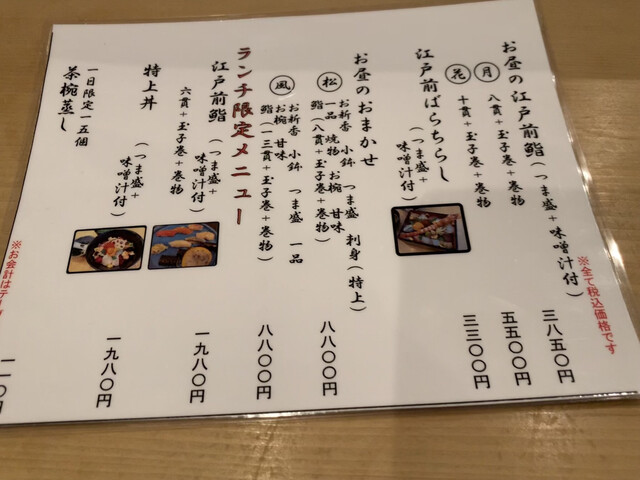 ※全て税込価格です
お昼の江戸前鮨(つま盛+味噌汁付)
月 八貫+玉子巻+巻物
花 十貫+玉子巻+巻物
三八五〇円
五五〇〇円
江戸前ばらちらし
(つま盛+
味噌汁付)
三三〇〇円
お昼のおまかせ
松
お新香 小鉢 つま盛 刺身(特上)
一品 焼物 お椀 甘味
鮨(八貫+玉子巻+巻物)
八八〇〇円
風
お新香 小鉢 つま盛 一品
お椀 甘味
鮨(一三貫+玉子巻+巻物)
八八〇〇円
ランチ限定メニュー
江戸前鮨
(つま盛+
味噌汁付)
六貫+玉子巻+巻物
一九八〇円
特上丼
(つま盛+
味噌汁付)
一九八〇円
一日限定一五個
茶椀蒸し
※お会計は